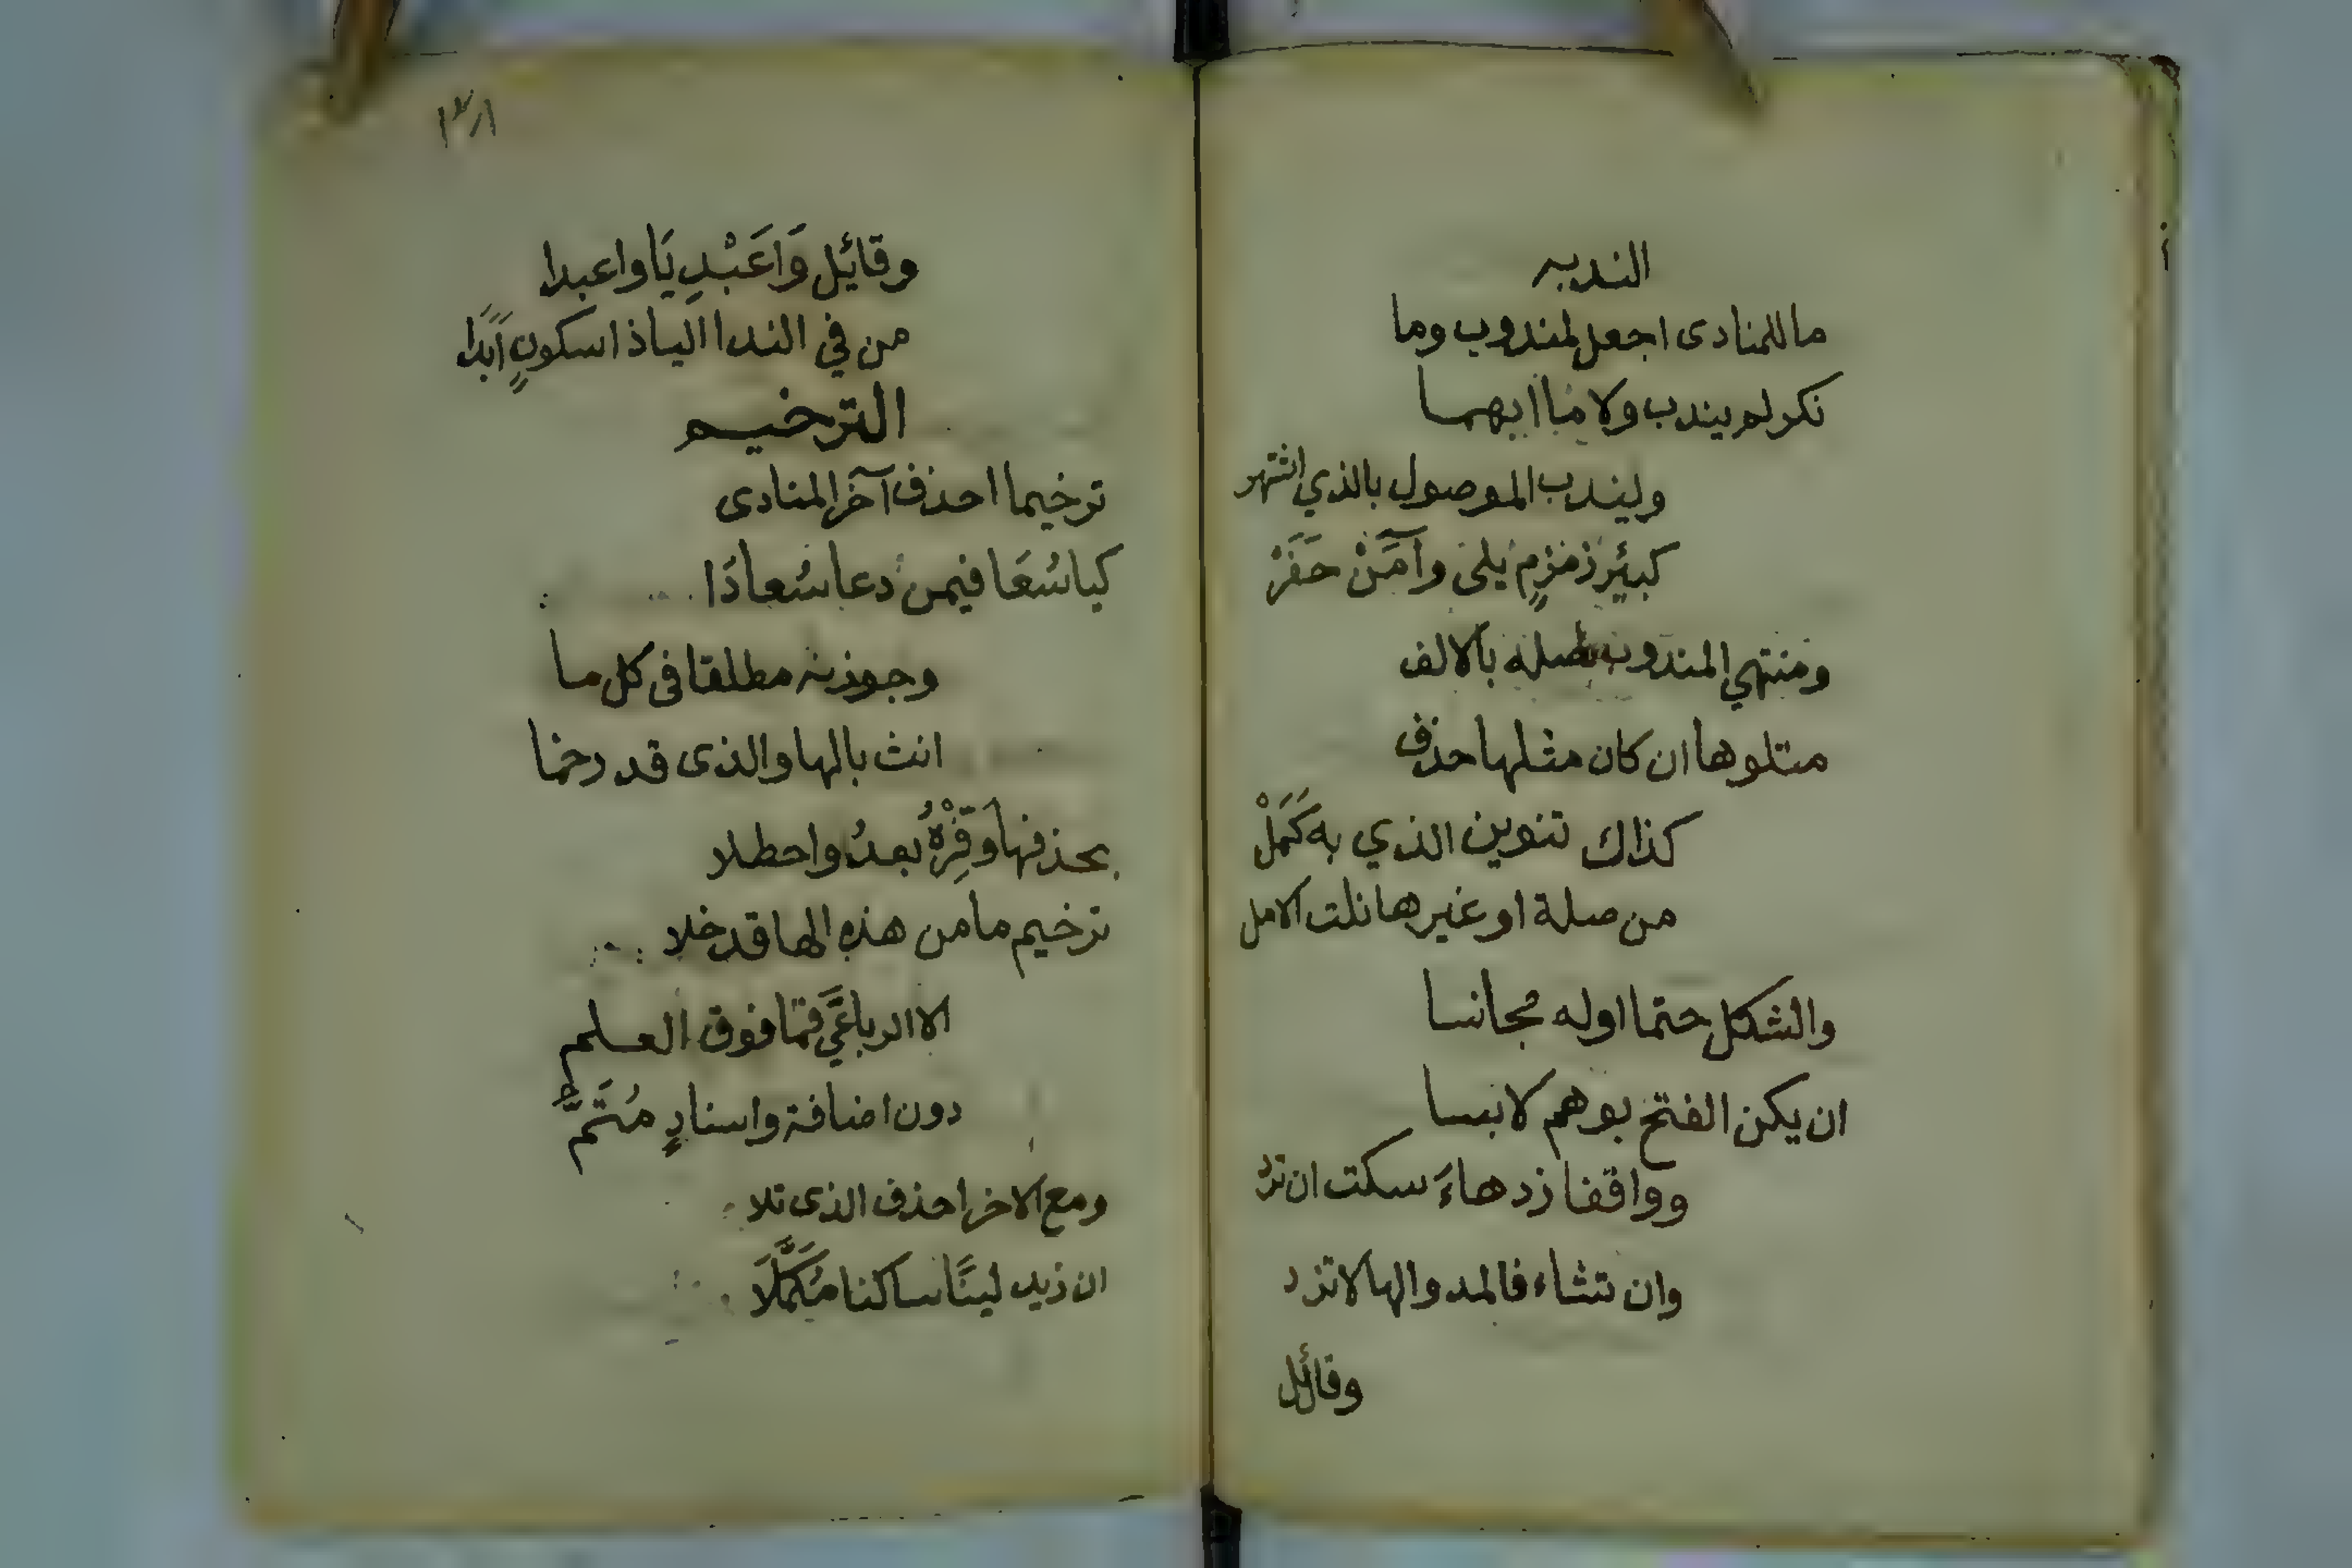 الندبه
ما للمنادى اجعل لمندوب وما
نكر لم يندب ولا ما ابهما
وليندب الموصول بالذي اشتهر
كبئر زمزمٍ يلى وآمَنْ حَفَرْ
ومنتهي المندوب صله بالالف
متلوها ان كان مثلها حذف
كذاك تنوين الذي به كَمَلْ
من صلة او غيرها نلت الامل
والشكل حتما اوله مجانسا
ان يكن الفتح بوهم لابسا
وواقفا زد هاءَ سكت ان ترد
وان تشاء فالمد والها لا تزد
وقائل
١٣٨
وقائل وَاعَبْدِيَا واعبدا
من في الندا اليا ذا سكونٍ اَبَدَا
الترخيم
ترخيما احذف آخر المنادى
كياسُعَا فيمن دعا سُعادَا
وجوزنه مطلقا فى كل ما
انث بالها والذى قد رخما
بحذفها وَفِّرْهُ بعدُ واحظلا
ترخيم ما من هذه الها قد خلا
الا الرباعَّي فمَا فوق العلم
دون اضافة واسنادٍ مُتَمّْ
ومع الاخر احذف الذى تلا
ان زيد لينًا ساكنا مُكَمَّلَا